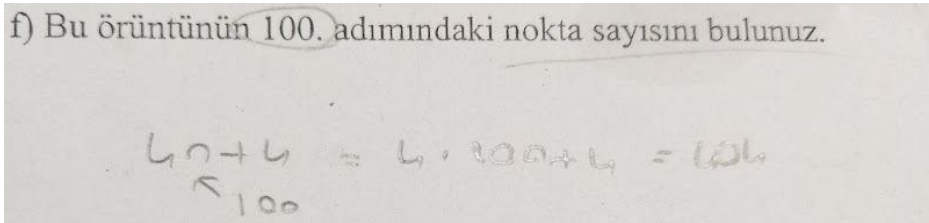 f) Bu örüntünün 100. adımındaki nokta sayısını bulunuz.
4n+4 = 4 . 100+4 = 404
100